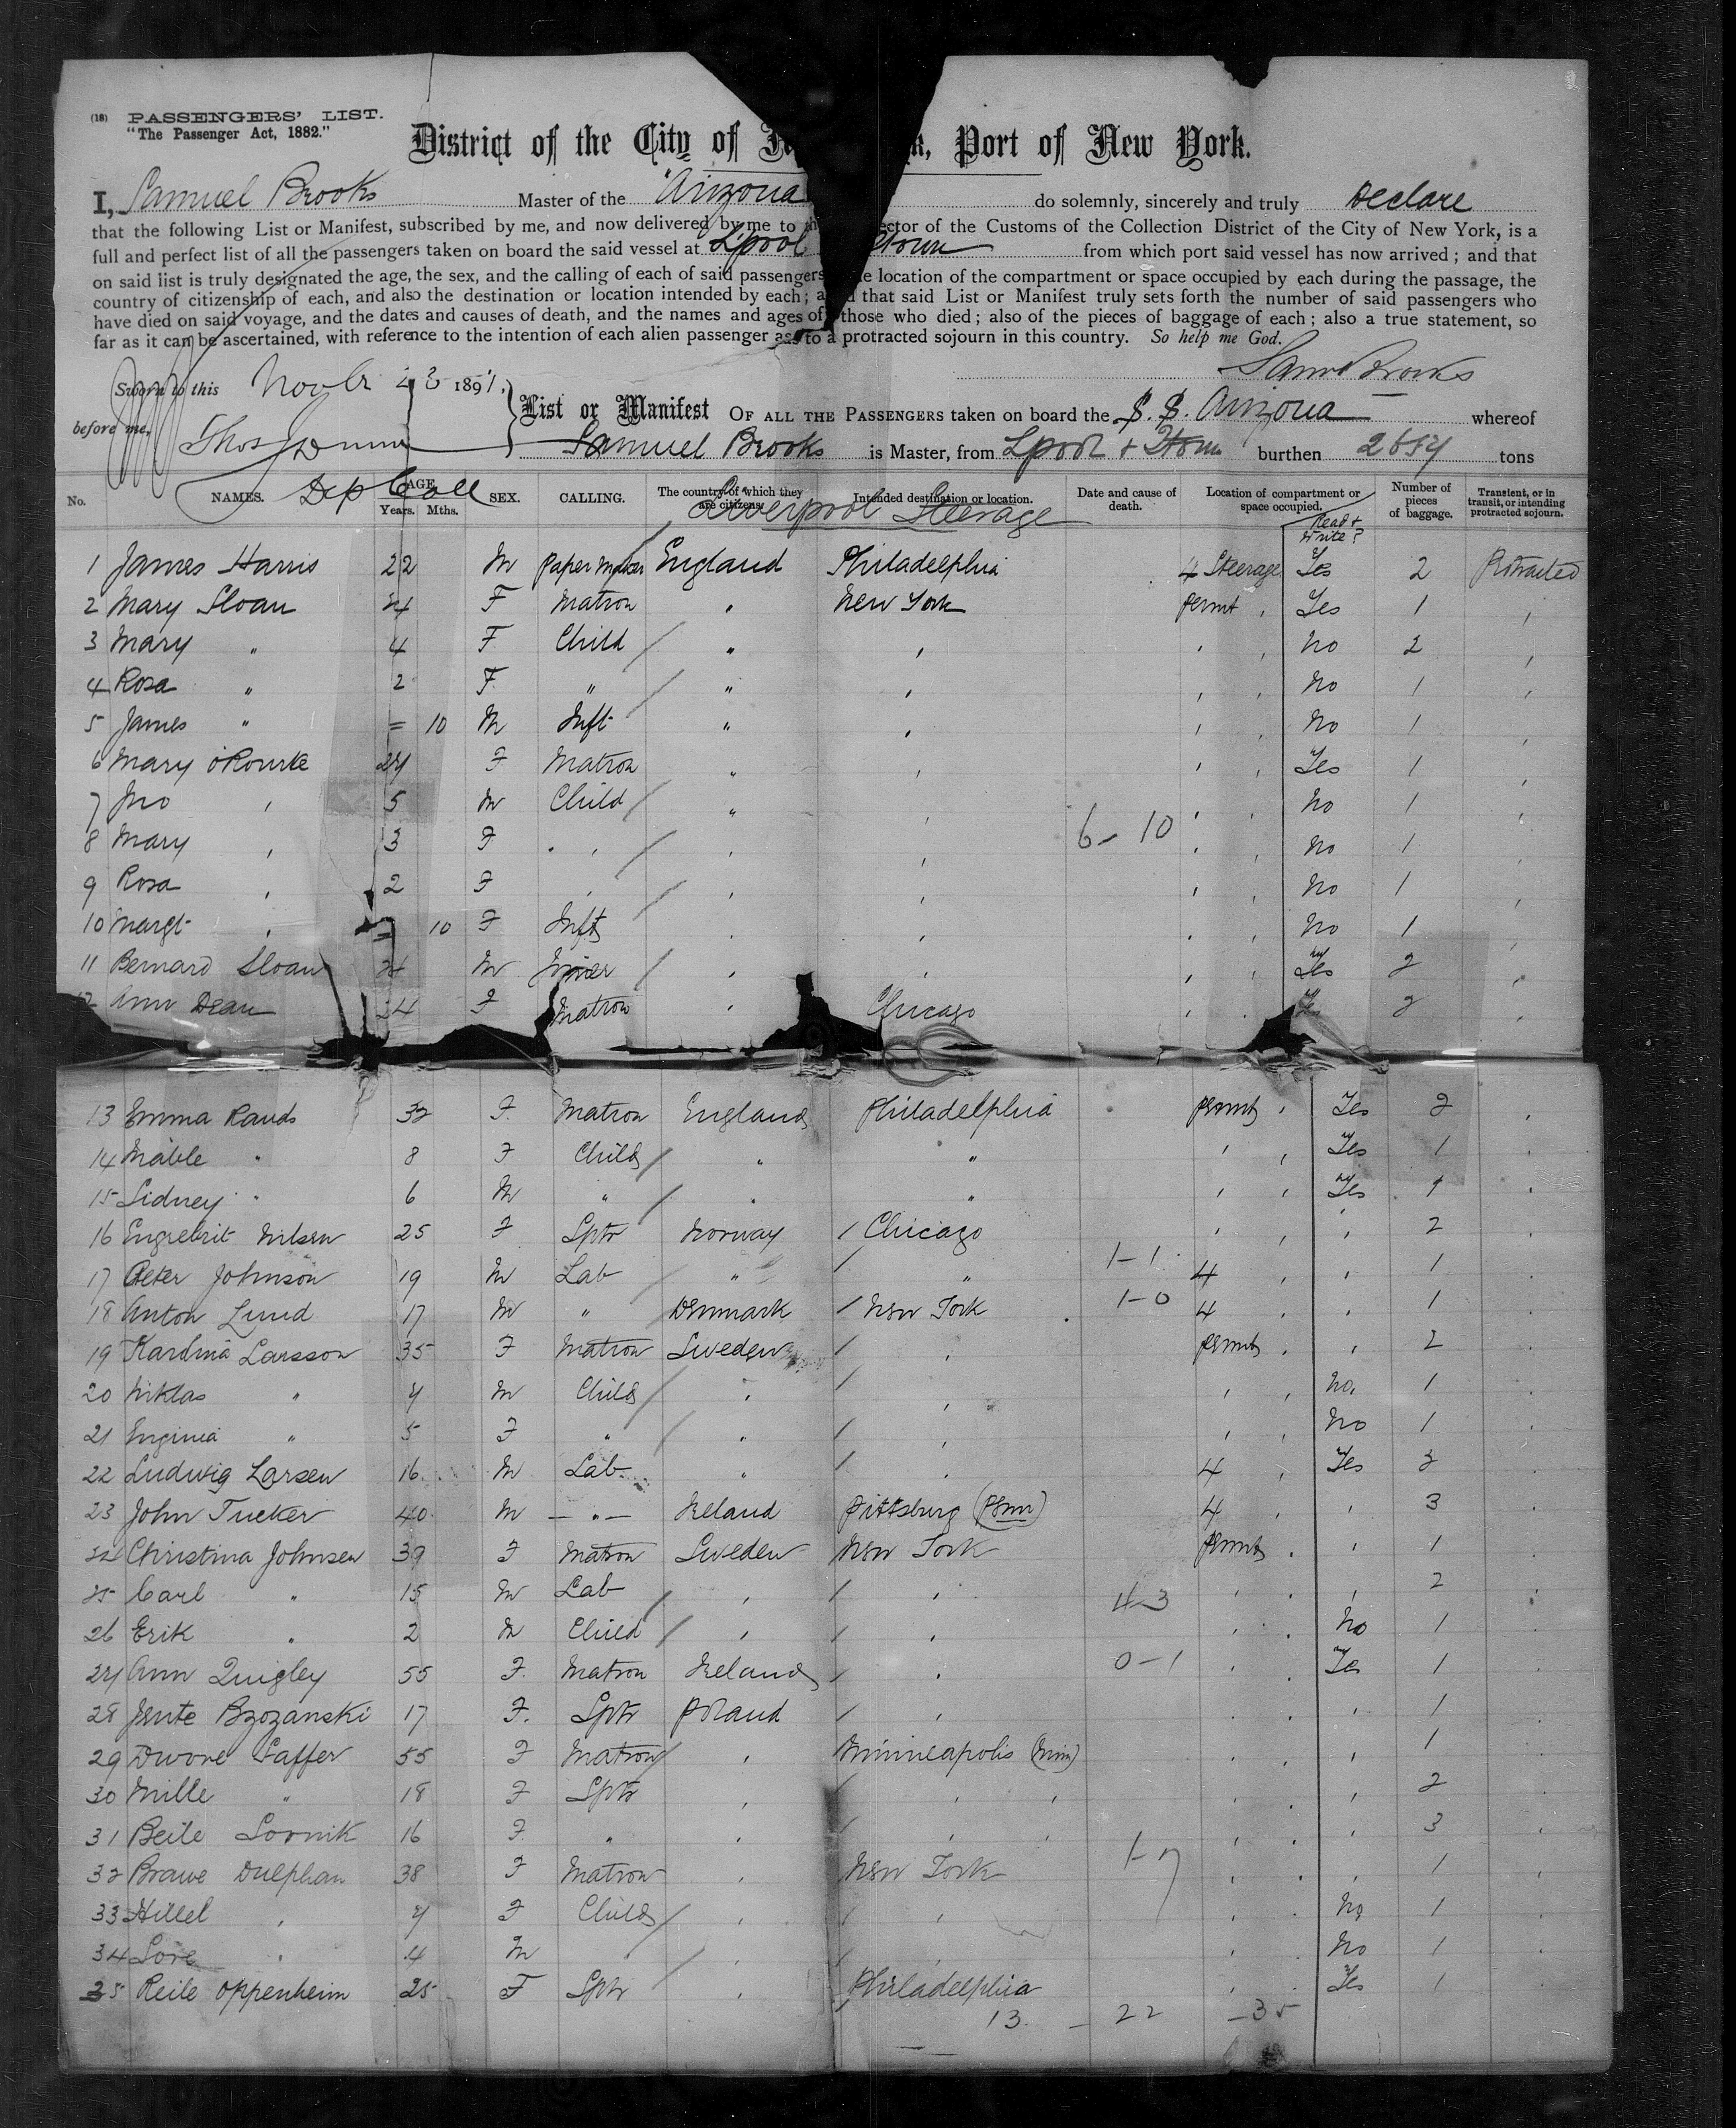 (18) PASSENGERS' LIST.
"The Passenger Act, 1882."
District of the City of Ne k, Port of New York.
I, Samuel Brooks Master of the "Arizona do solemnly, sincerely and truly Declare
that the following List or Manifest, subscribed by me, and now delivered by me to th ector of the Customs of the Collection District of the City of New York, is a
full and perfect list of all the passengers taken on board the said vessel at L'pool town from which port said vessel has now arrived; and that
on said list is truly designated the age, the sex, and the calling of each of said passengers e location of the compartment or space occupied by each during the passage, the
country of citizenship of each, and also the destination or location intended by each; a d that said List or Manifest truly sets forth the number of said passengers who
have died on said voyage, and the dates and causes of death, and the names and ages of those who died; also of the pieces of baggage of each; also a true statement, so
far as it can be ascertained, with reference to the intention of each alien passenger as to a protracted sojourn in this country. So help me God.
Saml Brooks
Sworn to this Novbr 23 1891,
before me,
List or Manifest OF ALL THE PASSENGERS taken on board the S.S. Arizona whereof
Samuel Brooks is Master, from Lpool + Qtown burthen tons
Dep Coll
No. NAMES. AGE. Years. Mths. SEX. CALLING. The country of which they are citizens. Intended destination or location. Date and cause of death. Location of compartment or space occupied. Number of pieces of baggage. Transient, or in transit, or intending protracted sojourn.
Liverpool Steerage
Read + Write?
1 James Harris 22 M Paper Maker England Philadelphia 4 Steerage Yes 2 Protracted
2 Mary Sloan 24 F Matron " New York Permt " Yes 1 "
3 Mary " 4 F Child " " " " No 2 "
4 Rosa " 2 F " " " " " No 1 "
5 James " = 10 M Inft " " " " No 1 "
6 Mary O'Rourke 27 F Matron " " " " Yes 1 "
7 Jno " 5 M Child " " " " No 1 "
6 - 10
8 Mary " 3 F " " " " " No 1 "
9 Rosa " 2 F " " " " " No 1 "
10 Margt " = 10 F Inft " " " " No 1 "
11 Bernard Sloan M " " " " Yes 2 "
12 Ann Dean 24 F Matron " Chicago " " Yes 2 "
13 Emma Rands 32 F Matron England Philadelphia Permt " Yes 2 "
14 Mable " 8 F Child " " " " Yes 1 "
15 Sidney " 6 M " " " " " Yes 1 "
16 Engrebrit Nilsen 25 F Sptr Norway Chicago " " " 2 "
1 - 1
17 Peter Johnson 19 M Lab " " 4 " " 1 "
1 - 0
18 Anton Lund 17 M " Denmark New York 4 " " 1 "
19 Karolina Larsson 35 F Matron Sweden " Permt " " 2 "
20 Niklas " 7 M Child " " " " No 1 "
21 " 5 F " " " " " No 1 "
22 Ludwig Larsen 16 M Lab " " 4 " Yes 2 "
23 John Tucker 40 M — " — Ireland Pittsburg (Penn) 4 " " 3 "
24 Christina Johnsen 39 F Matron Sweden New York Permt " " 1 "
25 Carl " 15 M Lab " " " " " 2 "
4 - 3
26 Erik " 2 M Child " " " " No 1 "
27 Ann Quigley 55 F Matron Ireland " 0 - 1 " " Yes 1 "
28 Jente Bzozanski 17 F Sptr Poland " " " " 1 "
29 Dwore Saffer 55 F Matron " Minneapolis (Minn) " " " 1 "
30 Mille " 18 F Sptr " " " " " " 2 "
31 Beile Sornik 16 F " " " " " " " 3 "
1 - 7
32 Brawe Dulphan 38 F Matron " New York " " " 1 "
33 Hillel " 7 F Child " " " No 1 "
34 Sore " 4 M " " " " No 1 "
35 Reile Oppenheim 25 F Sptr " Philadelphia " " Yes 1 "
13 - 22 - 35